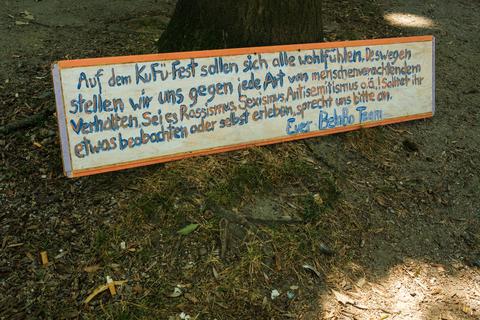 Auf dem KuFü Fest sollen sich alle wohlfühlen. Deswegen
stellen wir uns gegen jede Art von menschenverachtendem
Verhalten. Sei es Rassismus, Sexismus, Antisemitismus o.ä.! Solltet ihr
etwas beobachten oder selbst erleben, sprecht uns bitte an.
Euer BeloBo Team